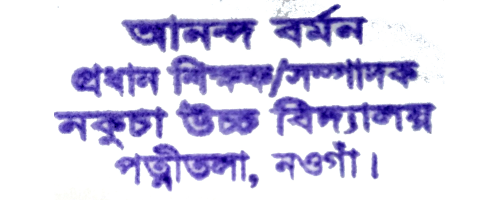 আনন্দ বর্মন
প্রধান শিক্ষক/সম্পাদক
নকুচা উচ্চ বিদ্যালয়
পত্নীতলা, নওগাঁ।